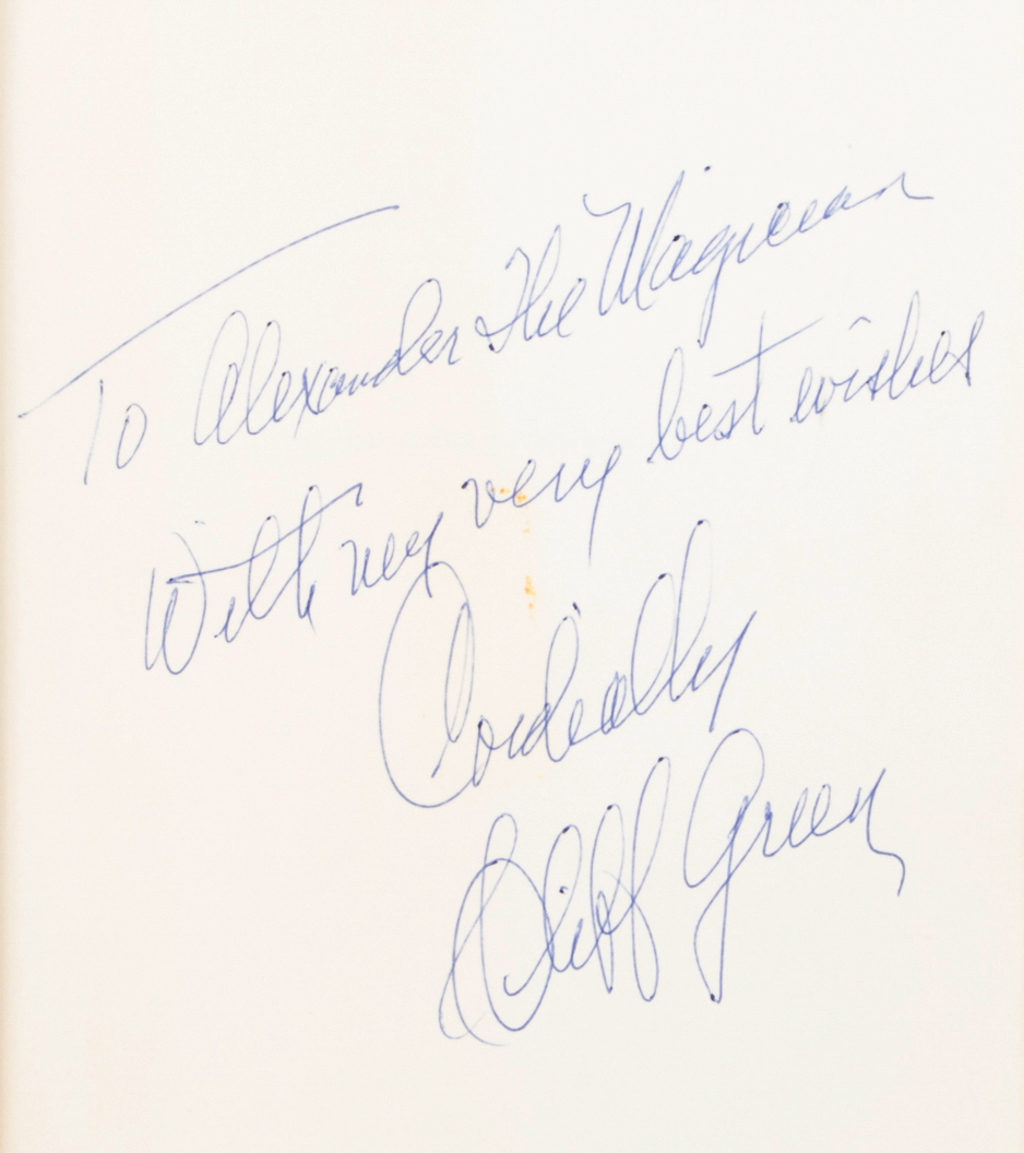 To Alexander The Magician
With my very best wishes
Cordially
Cliff Green